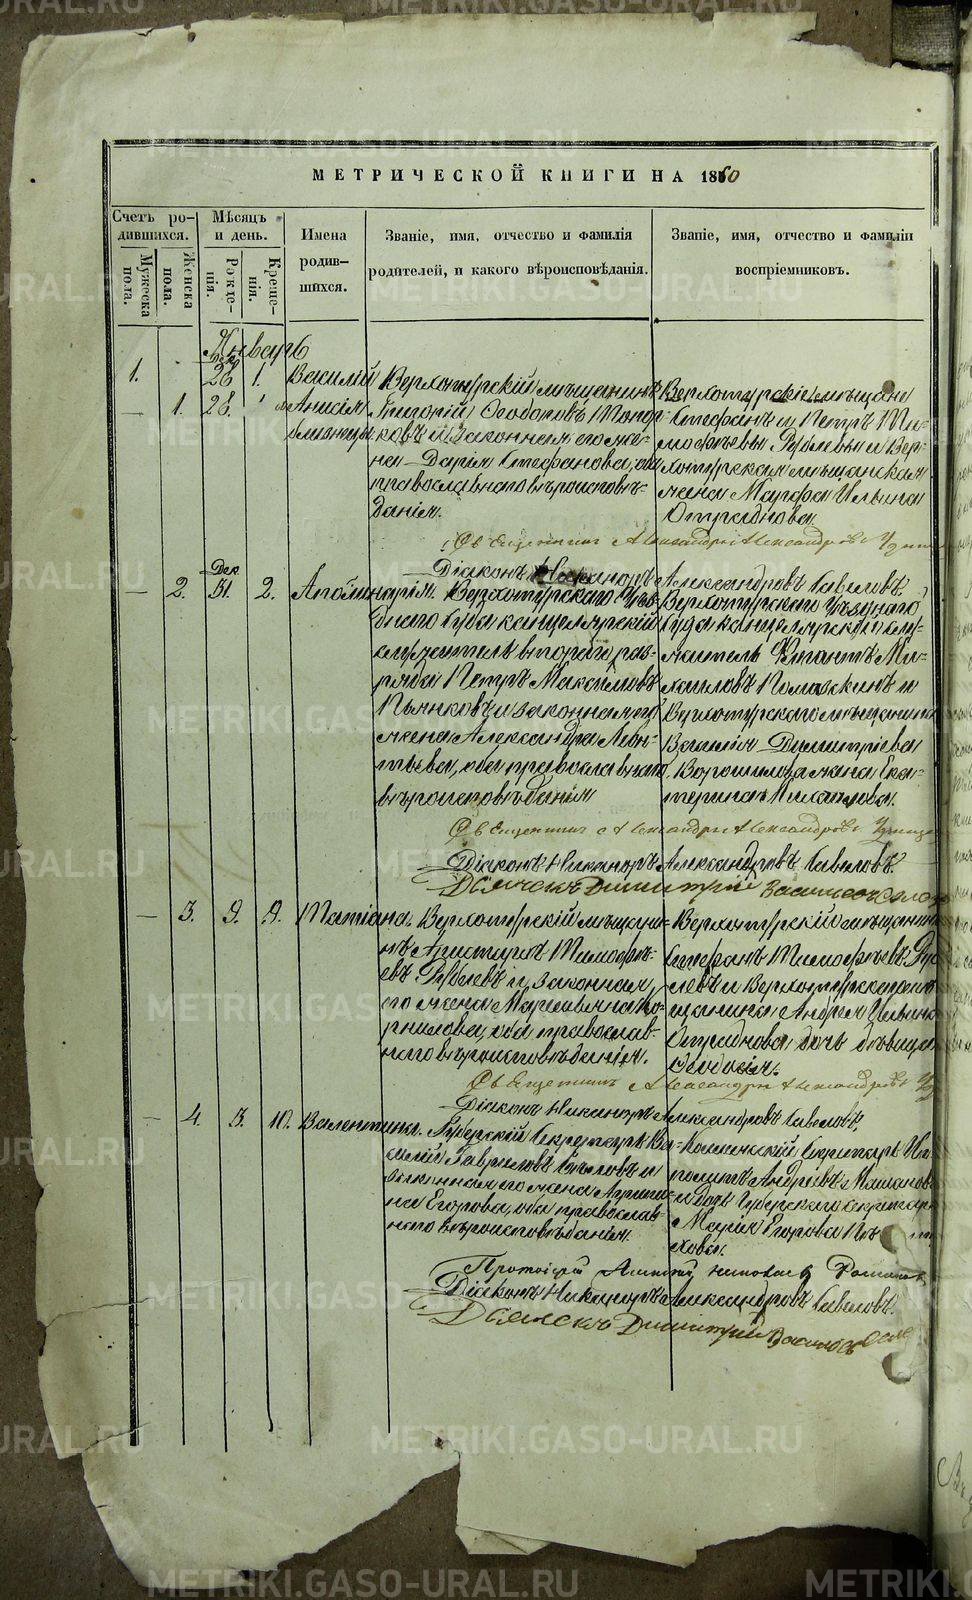 МЕТРИЧЕСКОЙ КНИГИ НА 1860
Счетъ ро-
дившихся.
Мужеска
пола.
Женска
пола.
Мѣсяцъ
и день.
Рожде-
нія.
Креще-
нія.
Имена
родив-
шихся.
Званіе, имя, отчество и фамилія
родителей, и какого вѣроисповѣданія.
Званіе, имя, отчество и фамиліи
воспріемниковъ.
Январь
Дек
1. 28 1. Василій
1. 28. Анисія
близнецы
Верхотурскій мѣщанинъ
Григорій Ѳеодотовъ Топор-
ковъ и законная его же-
на Дарія Стефанова, оба
православнаго вѣроисповѣ-
данія.
Верхотурскіе мѣщане
Стефанъ и Петръ Ти-
моѳѣевы Рублевы и Вер-
хотурская мѣщанская
жена Марфа Ильина
Отраднова
Священникъ Александръ Александровъ
Діаконъ Никаноръ Александровъ Савеловъ.
Дек
2. 31. 2. Аполинарія.
Верхотурскаго Уѣз-
днаго Суда канцелярскій
служитель втораго раз-
ряда Петръ Максимовъ
Пьянковъ и законная его
жена Александра Леон-
тьева, оба православнаго
вѣроисповѣданія
Верхотурскаго Уѣзднаго
Суда канцелярскій слу-
житель Ми-
хаиловъ и
Верхотурскаго мѣщанина
Василія Димитріева
Ворошилова жена Ека-
терина Михаилова.
Священникъ Александръ Александровъ
Діаконъ Никаноръ Александровъ Савеловъ.
Дьячекъ Димитрій Васильевъ
3. 9. 9. Татіана.
Верхотурскій мѣщани-
нъ Тимоѳѣ-
евъ Рублевъ и законная
его жена Ко-
рнилова, оба православ-
наго вѣроисповѣданія.
Верхотурскій мѣщанинъ
Стефанъ Тимоѳѣевъ Руб-
левъ и Верхотурскаго мѣ-
щанина Андрея Ильина
Отраднова дочь дѣвица
Ѳеодосія.
Священникъ Александръ Александровъ
Діаконъ Никаноръ Александровъ Савеловъ.
4. 3. 10. Валентина.
Губерскій Секретарь Ва-
силій Гавриловъ и
законная его жена
Егорова, оба православ-
наго вѣроисповѣданія.
Секретарь Ип-
политъ Андреевъ
и Губерскаго секретаря
Марія Егорова
Протоіерей
Діаконъ Никаноръ Александровъ Савеловъ.
Дьячекъ Димитрій Васильевъ
METRIKI.GASO-URAL.RU